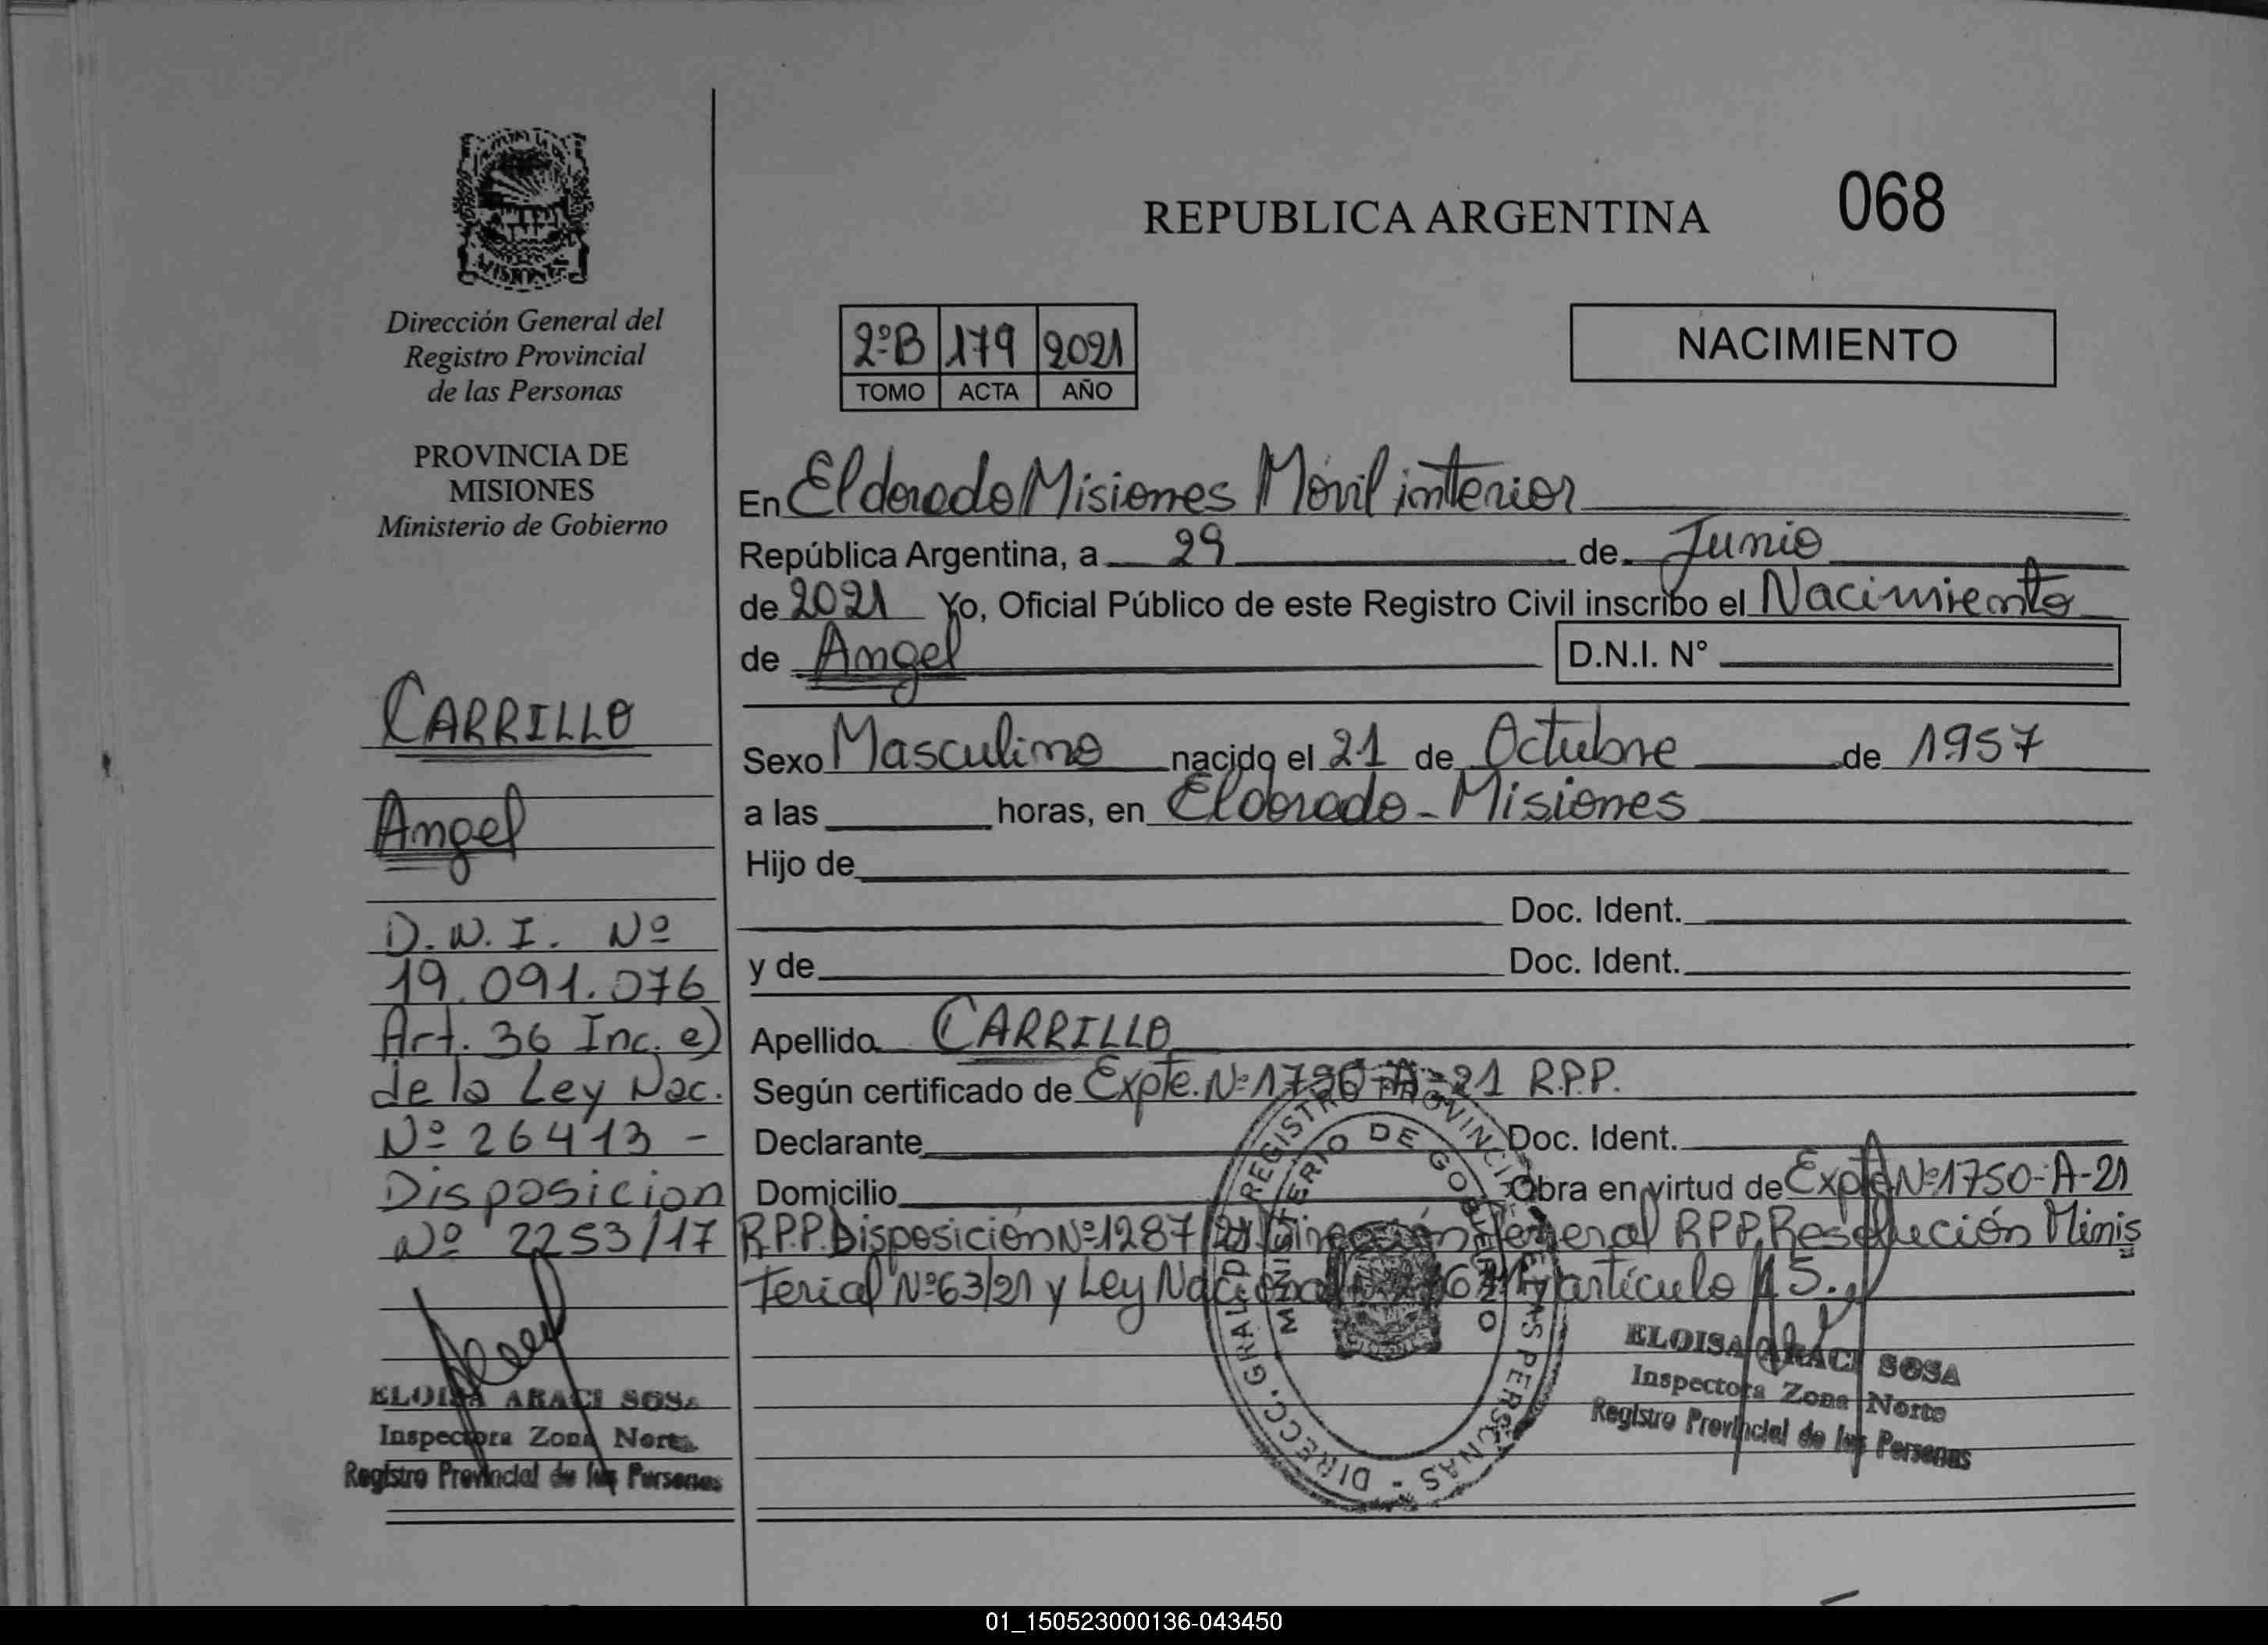 REPUBLICA ARGENTINA 068
Dirección General del
Registro Provincial
de las Personas
PROVINCIA DE
MISIONES
Ministerio de Gobierno
2ºB 179 2021
TOMO ACTA AÑO
NACIMIENTO
CARRILLO
Angel
D.N.I. Nº
19.091.076
Art. 36 Inc. e)
de la Ley Nac.
Nº 26413 -
Disposicion
Nº 2253/17
ELOISA ARACI SOSA
Inspectora Zona Norte
Registro Provincial de las Personas
En Eldorado Misiones Móvil interior
República Argentina, a 29 de Junio
de 2021 Yo, Oficial Público de este Registro Civil inscribo el Nacimiento
de Angel D.N.I. N°
Sexo Masculino nacido el 21 de Octubre de 1957
a las horas, en Eldorado - Misiones
Hijo de
Doc. Ident.
y de Doc. Ident.
Apellido CARRILLO
Según certificado de Expte. Nº -21 R.P.P.
Declarante Doc. Ident.
Domicilio Obra en virtud de Expte Nº1750-A-21
R.P.P. Disposición Nº1287/21 Dirección General RPP. Resolución Minis
terial Nº63/21 y Ley Nacional artículo 15.
DIRECC. GRAL. REGISTRO PROVINCIAL PERSONAS -
MINISTERIO DE GOBIERNO
ELOISA ARACI SOSA
Inspectora Zona Norte
Registro Provincial de las Personas
01_150523000136-043450